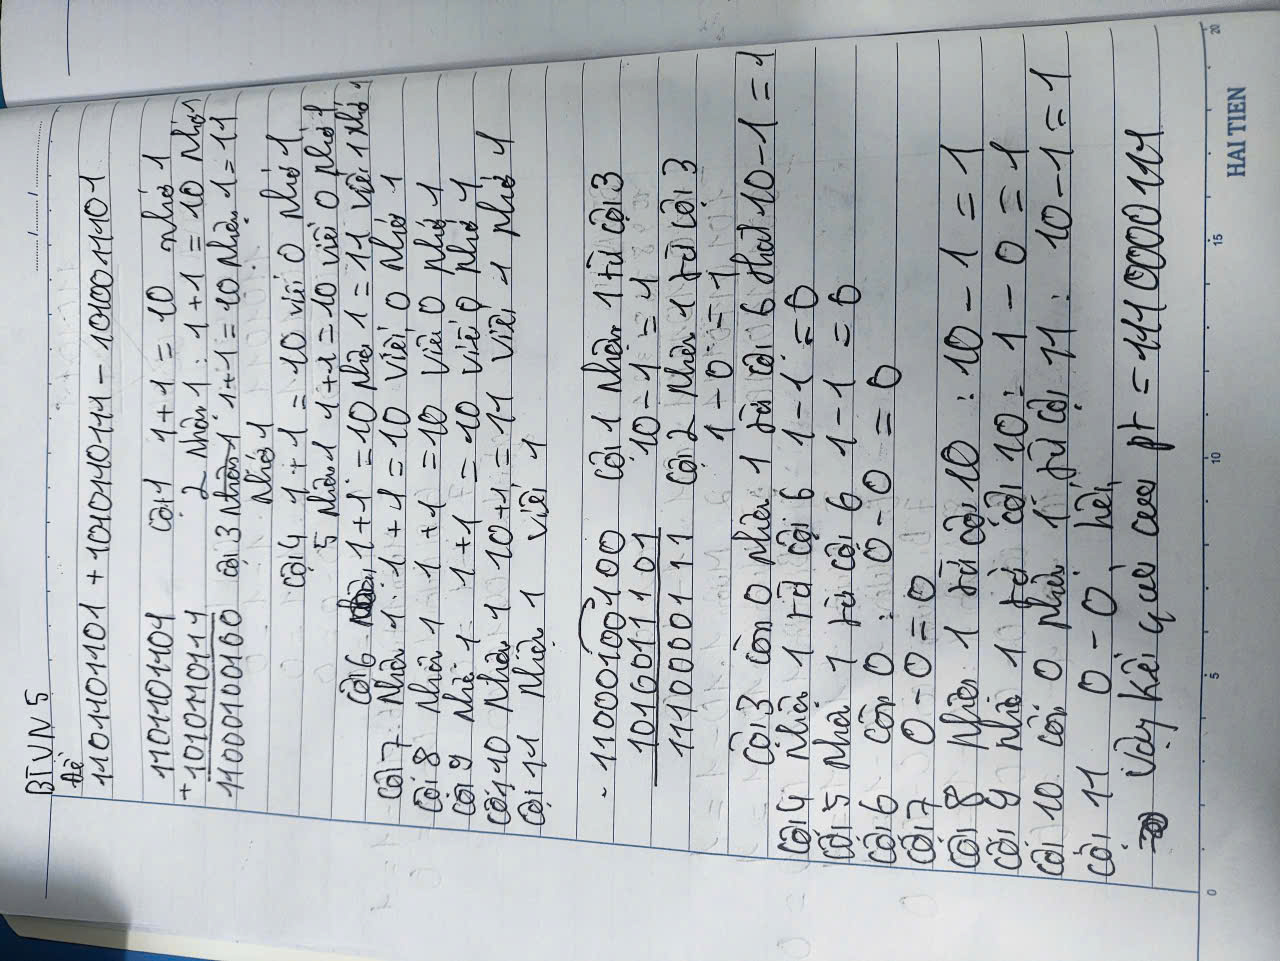 BTVN 5
Đề
1101101101 + 1010110111 - 1010011101
1101101101 Cột 1 1 + 1 = 10 nhớ 1
+ 1010110111 2 Nhận 1 : 1 + 1 = 10 Nhớ 1
11000100100 Cột 3 1 + 1 = 10 Nhận 1 = 11
Nhớ 1
Cột 4 1 + 1 = 10 viết 0 Nhớ 1
5 Nhận 1 1 + 1 = 10 viết 0 Nhớ 1
Cột 6 Nhận 1 + 1 = 10 Nhận 1 = 11 viết 1 Nhớ 1
Cột 7 Nhận 1 : 1 + 1 = 10 viết 0 Nhớ 1
Cột 8 Nhận 1 1 + 1 = 10 viết 0 Nhớ 1
Cột 9 Nhận 1 : 1 + 1 = 10 viết 0 Nhớ 1
Cột 10 Nhận 1 10 + 1 = 11 viết 1 Nhớ 1
Cột 11 Nhận 1 viết 1
- 11000100100 Cột 1 Nhận 1 từ cột 3
1010011101 10 - 1 = 1
1110000111 Cột 2 Nhận 1 từ cột 3
1 - 0 = 1
Cột 3 còn 0 Nhận 1 từ cột 6 that 10 - 1 = 1
Cột 4 Nhận 1 từ cột 6 1 - 1 = 0
Cột 5 Nhận 1 từ cột 6 1 - 1 = 0
Cột 6 còn 0 : 0 - 0 = 0
Cột 7 0 - 0 = 0
Cột 8 Nhận 1 từ cột 10 : 10 - 1 = 1
Cột 9 Nhận 1 từ cột 10 : 1 - 0 = 1
Cột 10 còn 0 Nhận 1 từ cột 11 : 10 - 1 = 1
Cột 11 0 - 0, hết
=> Vậy kết quả của pt = 1110000111
0 5 10 15 20
HAI TIEN